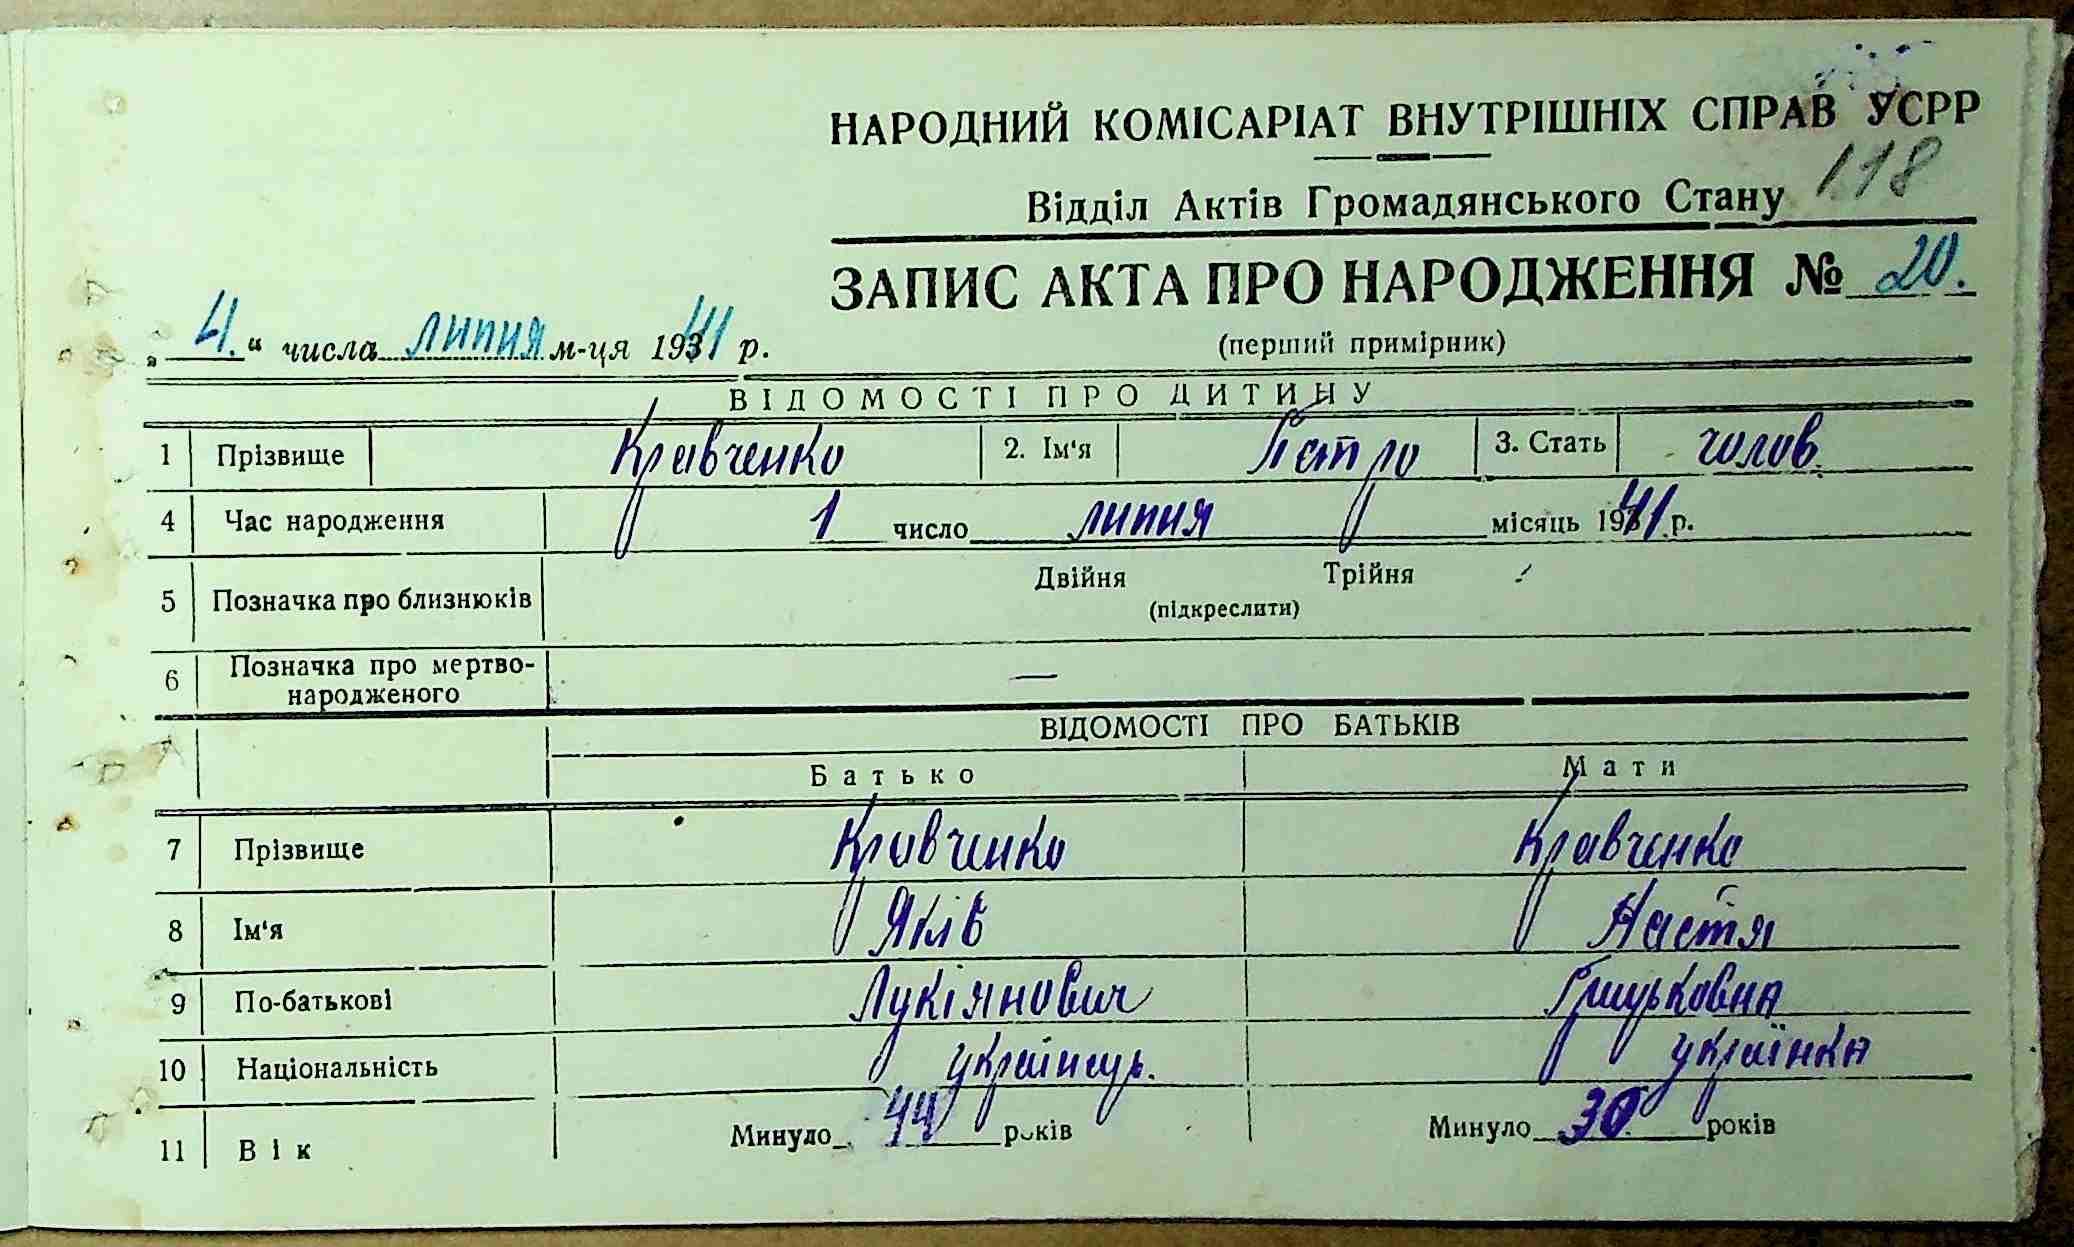 НАРОДНИЙ КОМІСАРІАТ ВНУТРІШНІХ СПРАВ УСРР
118
Відділ Актів Громадянського Стану
ЗАПИС АКТА ПРО НАРОДЖЕННЯ № 20.
„4.“ числа липня м-ця 1941 р.
(перший примірник)
ВІДОМОСТІ ПРО ДИТИНУ
1 Прізвище Кравченко 2. Ім'я Петро 3. Стать чолов.
4 Час народження 1 число липня місяць 1941 р.
5 Позначка про близнюків Двійня Трійня
(підкреслити)
6 Позначка про мертво-
народженого —
ВІДОМОСТІ ПРО БАТЬКІВ
Батько Мати
7 Прізвище Кравченко Кравченко
8 Ім'я Яків Настя
9 По-батькові Лукіянович Грицьковна
10 Національність українець. українка
11 Вік Минуло 44 років Минуло 30 років